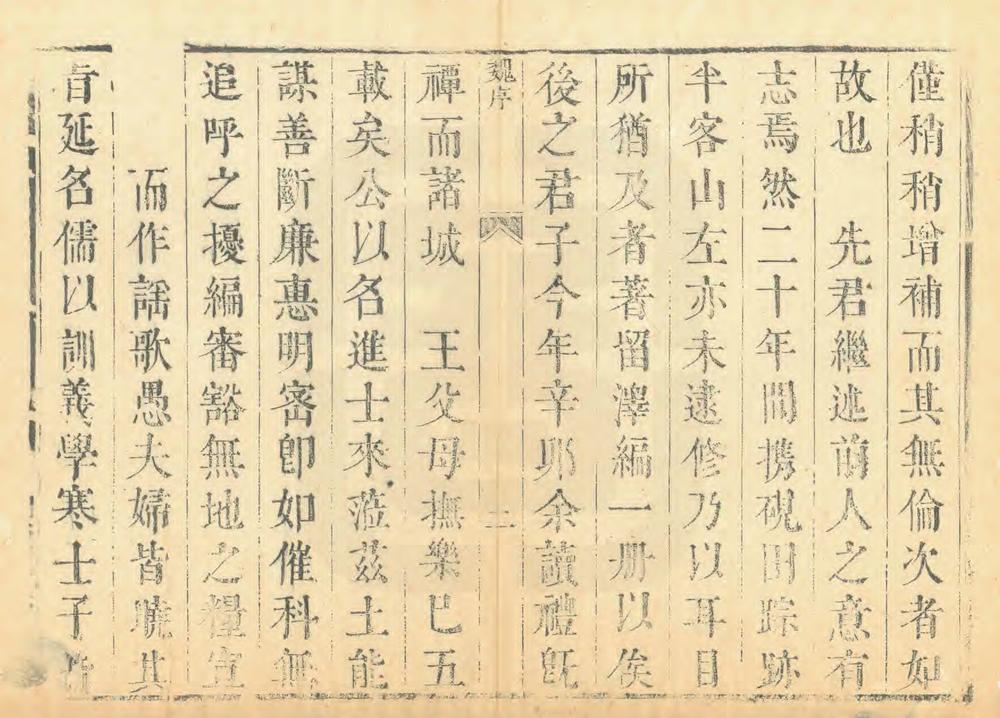 僅稍稍增補而其無倫次者如
故也 先君繼述前人之意有
志焉然二十年間携硯田踪跡
半客山左亦未逮修乃以耳目
所猶及者著留澤編一册以俟
後之君子今年辛卯余讀禮旣
魏序 二
禫而諸城 王父母撫樂巳五
載矣公以名進士來蒞茲土能
謀善斷廉惠明宻卽如催科無
追呼之擾編審豁無地之糧宣
而作謡歌愚夫婦皆曉其
旨延名儒以訓義學寒士子